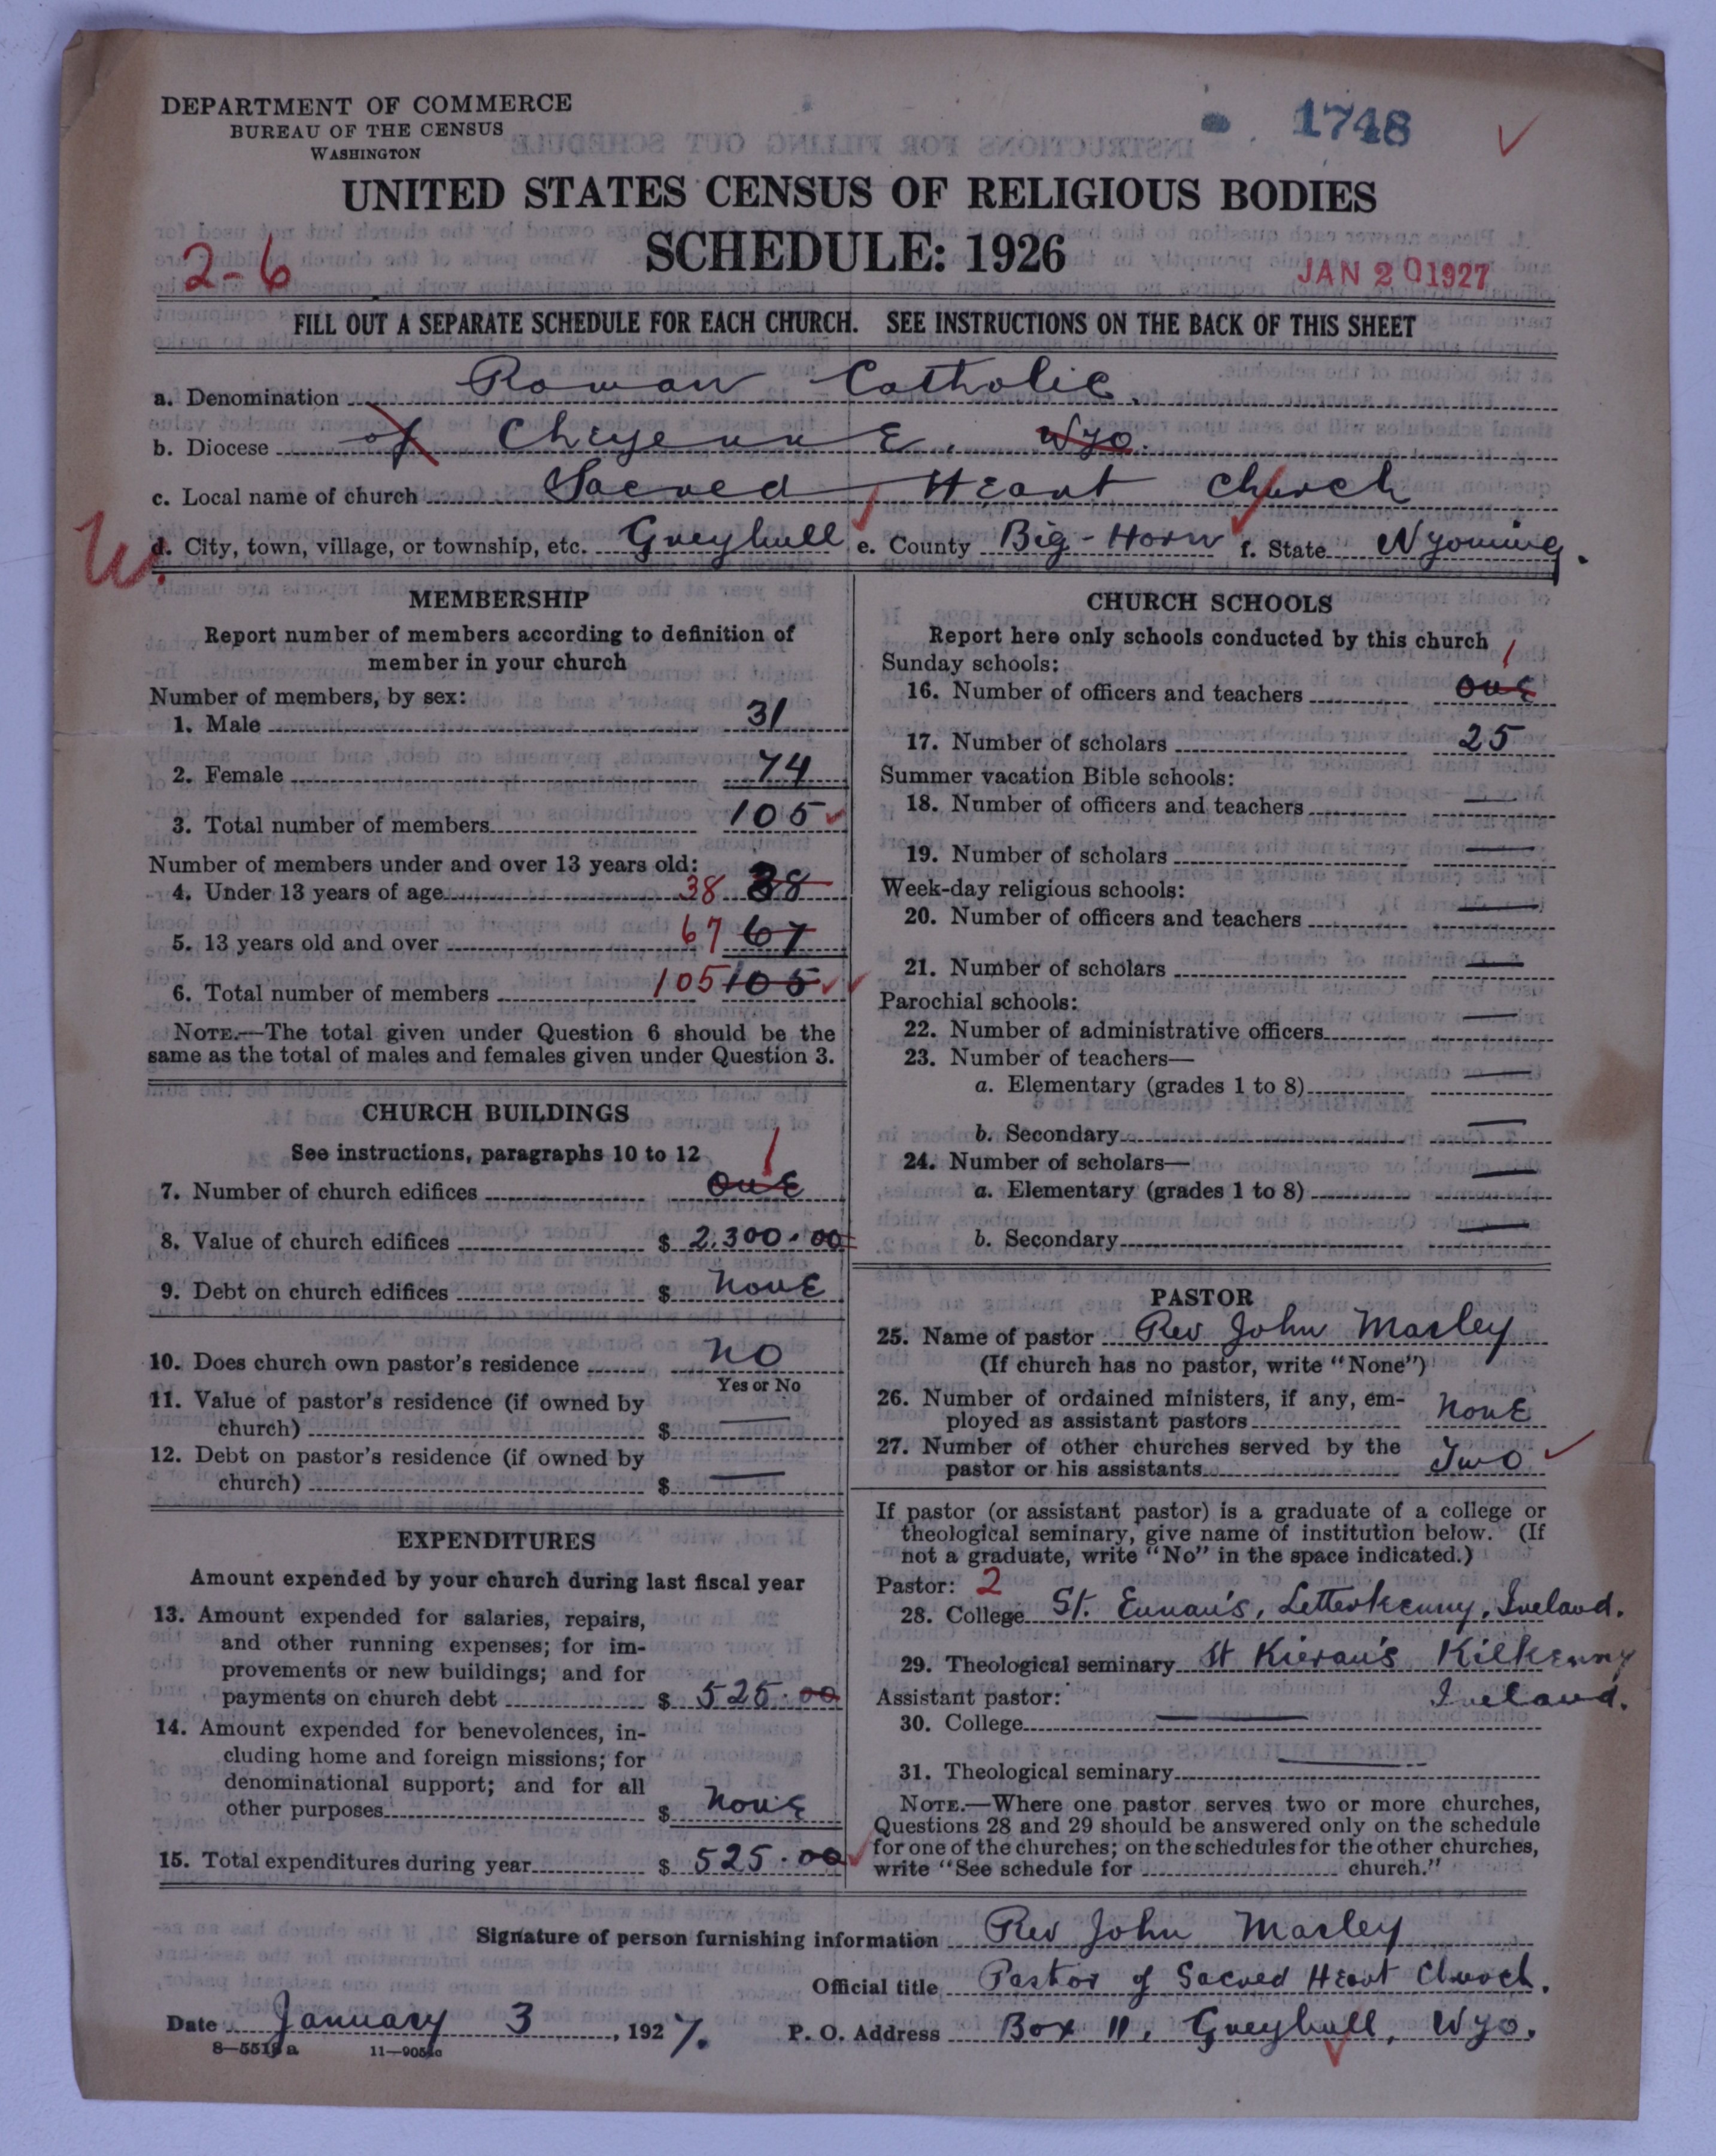 DEPARTMENT OF COMMERCE
BUREAU OF THE CENSUS
WASHINGTON
1748
UNITED STATES CENSUS OF RELIGIOUS BODIES
SCHEDULE: 1926
2-6
JAN 20 1927
FILL OUT A SEPARATE SCHEDULE FOR EACH CHURCH. SEE INSTRUCTIONS ON THE BACK OF THIS SHEET
a. Denomination Roman Catholic
b. Diocese of Cheyenne, Wyo.
c. Local name of church Sacred Heart Church
d. City, town, village, or township, etc. Greybull e. County Big-Horn f. State Wyoming.
MEMBERSHIP
Report number of members according to definition of
member in your church
Number of members, by sex:
1. Male 31
2. Female 74
3. Total number of members 105
Number of members under and over 13 years old:
4. Under 13 years of age 38 38
5. 13 years old and over 67 67
6. Total number of members 105 105
NOTE.—The total given under Question 6 should be the
same as the total of males and females given under Question 3.
CHURCH BUILDINGS
See instructions, paragraphs 10 to 12
1
7. Number of church edifices one
8. Value of church edifices $ 2,300.00
9. Debt on church edifices $ none
10. Does church own pastor's residence no
Yes or No
11. Value of pastor's residence (if owned by
church) $ —
12. Debt on pastor's residence (if owned by
church) $ —
EXPENDITURES
Amount expended by your church during last fiscal year
13. Amount expended for salaries, repairs,
and other running expenses; for im-
provements or new buildings; and for
payments on church debt $ 525.00
14. Amount expended for benevolences, in-
cluding home and foreign missions; for
denominational support; and for all
other purposes $ none
15. Total expenditures during year $ 525.00
CHURCH SCHOOLS
Report here only schools conducted by this church
Sunday schools: 1
16. Number of officers and teachers one
17. Number of scholars 25
Summer vacation Bible schools:
18. Number of officers and teachers —
19. Number of scholars —
Week-day religious schools:
20. Number of officers and teachers —
21. Number of scholars —
Parochial schools:
22. Number of administrative officers —
23. Number of teachers—
a. Elementary (grades 1 to 8) —
b. Secondary —
24. Number of scholars—
a. Elementary (grades 1 to 8) —
b. Secondary —
PASTOR
25. Name of pastor Rev John Marley
(If church has no pastor, write "None")
26. Number of ordained ministers, if any, em-
ployed as assistant pastors none
27. Number of other churches served by the
pastor or his assistants Two
If pastor (or assistant pastor) is a graduate of a college or
theological seminary, give name of institution below. (If
not a graduate, write "No" in the space indicated.)
Pastor: 2
28. College St. Eunan's, Letterkenny, Ireland.
29. Theological seminary St Kieran's Kilkenny
Assistant pastor: Ireland.
30. College —
31. Theological seminary —
NOTE.—Where one pastor serves two or more churches,
Questions 28 and 29 should be answered only on the schedule
for one of the churches; on the schedules for the other churches,
write "See schedule for church."
Signature of person furnishing information Rev John Marley
Official title Pastor of Sacred Heart Church.
Date January 3, 1927. P. O. Address Box 11, Greybull, Wyo.
8—5518a 11—9051c